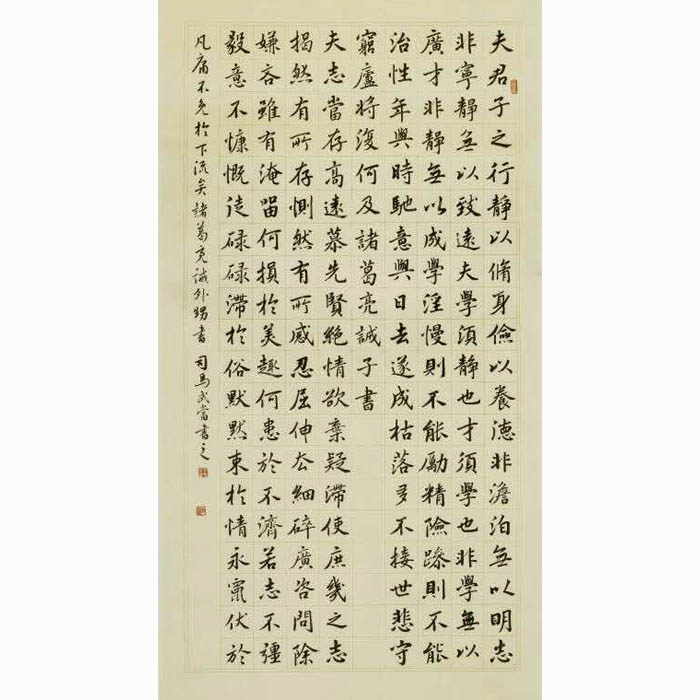 夫君子之行靜以脩身儉以養德非澹泊無以明志
非寧靜無以致遠夫學須靜也才須學也非學無以
廣才非靜無以成學淫慢則不能勵精險躁則不能
治性年與時馳意與日去遂成枯落多不接世悲守
窮廬將復何及諸葛亮誡子書
夫志當存高遠慕先賢絕情欲棄疑滯使庶幾之志
揭然有所存惻然有所感忍屈伸去細碎廣咨問除
嫌吝雖有淹留何損於美趣何患於不濟若志不彊
毅意不慷慨徒碌碌滯於俗默默束於情永竄伏於
凡庸不免於下流矣諸葛亮誡外甥書 司馬武當書之